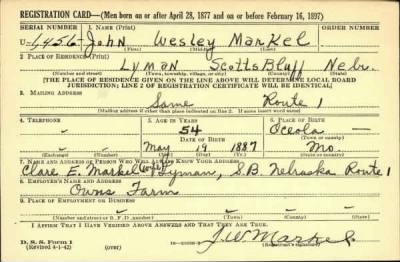 REGISTRATION CARD—(Men born on or after April 28, 1877 and on or before February 16, 1897)
SERIAL NUMBER 1. NAME (Print) ORDER NUMBER
U-1,456 John Wesley Markel
(First) (Middle) (Last)
2. PLACE OF RESIDENCE (Print)
Lyman Scotts Bluff Nebr.
(Number and street) (Town, township, village, or city) (County) (State)
[THE PLACE OF RESIDENCE GIVEN ON THE LINE ABOVE WILL DETERMINE LOCAL BOARD
JURISDICTION; LINE 2 OF REGISTRATION CERTIFICATE WILL BE IDENTICAL]
3. MAILING ADDRESS
Same Route 1
[Mailing address if other than place indicated on line 2. If same insert word same]
4. TELEPHONE 5. AGE IN YEARS 6. PLACE OF BIRTH
- 54 Oceola -
DATE OF BIRTH (Town or county)
- - May 19 1887 Mo.
(Exchange) (Number) (Mo.) (Day) (Yr.) (State or country)
7. NAME AND ADDRESS OF PERSON WHO WILL ALWAYS KNOW YOUR ADDRESS
Clare E. Markel (wife) Lyman, S.B. Nebraska Route 1
8. EMPLOYER'S NAME AND ADDRESS
Owns Farm
9. PLACE OF EMPLOYMENT OR BUSINESS
- - - -
(Number and street or R. F. D. number) (Town) (County) (State)
I AFFIRM THAT I HAVE VERIFIED ABOVE ANSWERS AND THAT THEY ARE TRUE.
D. S. S. Form 1
(Revised 4-1-42) (over) J.W. Markel
(Registrant's signature)